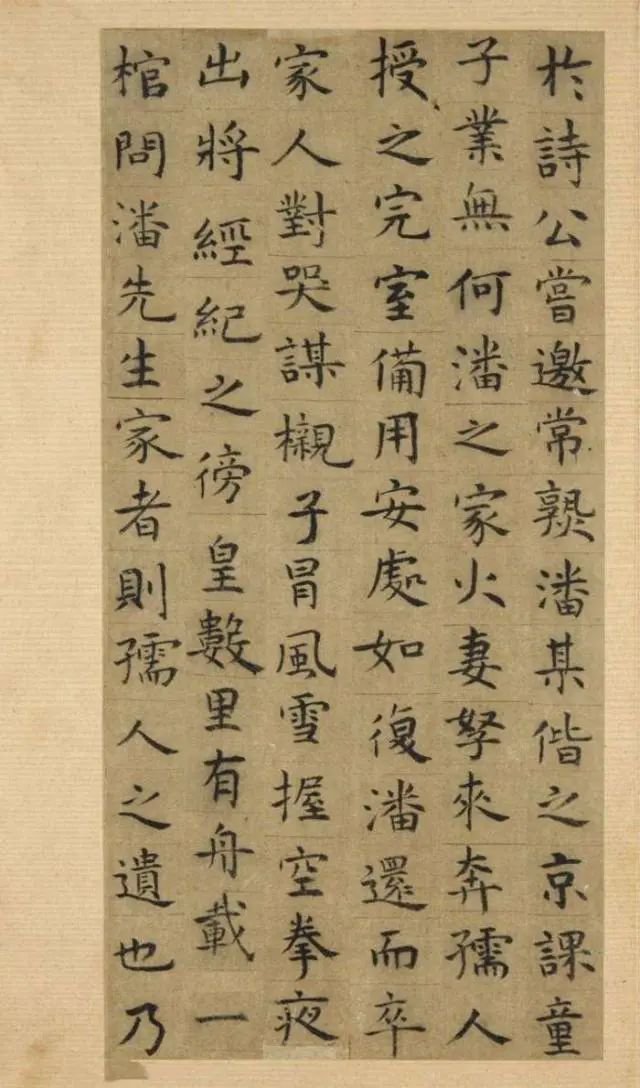 於詩公嘗邀常熟潘某偕之京課童
子業無何潘之家火妻孥來奔孺人
授之完室備用安處如復潘還而卒
家人對哭謀櫬子冒風雪握空拳夜
出將經紀之徬皇數里有舟載一
棺問潘先生家者則孺人之遺也乃